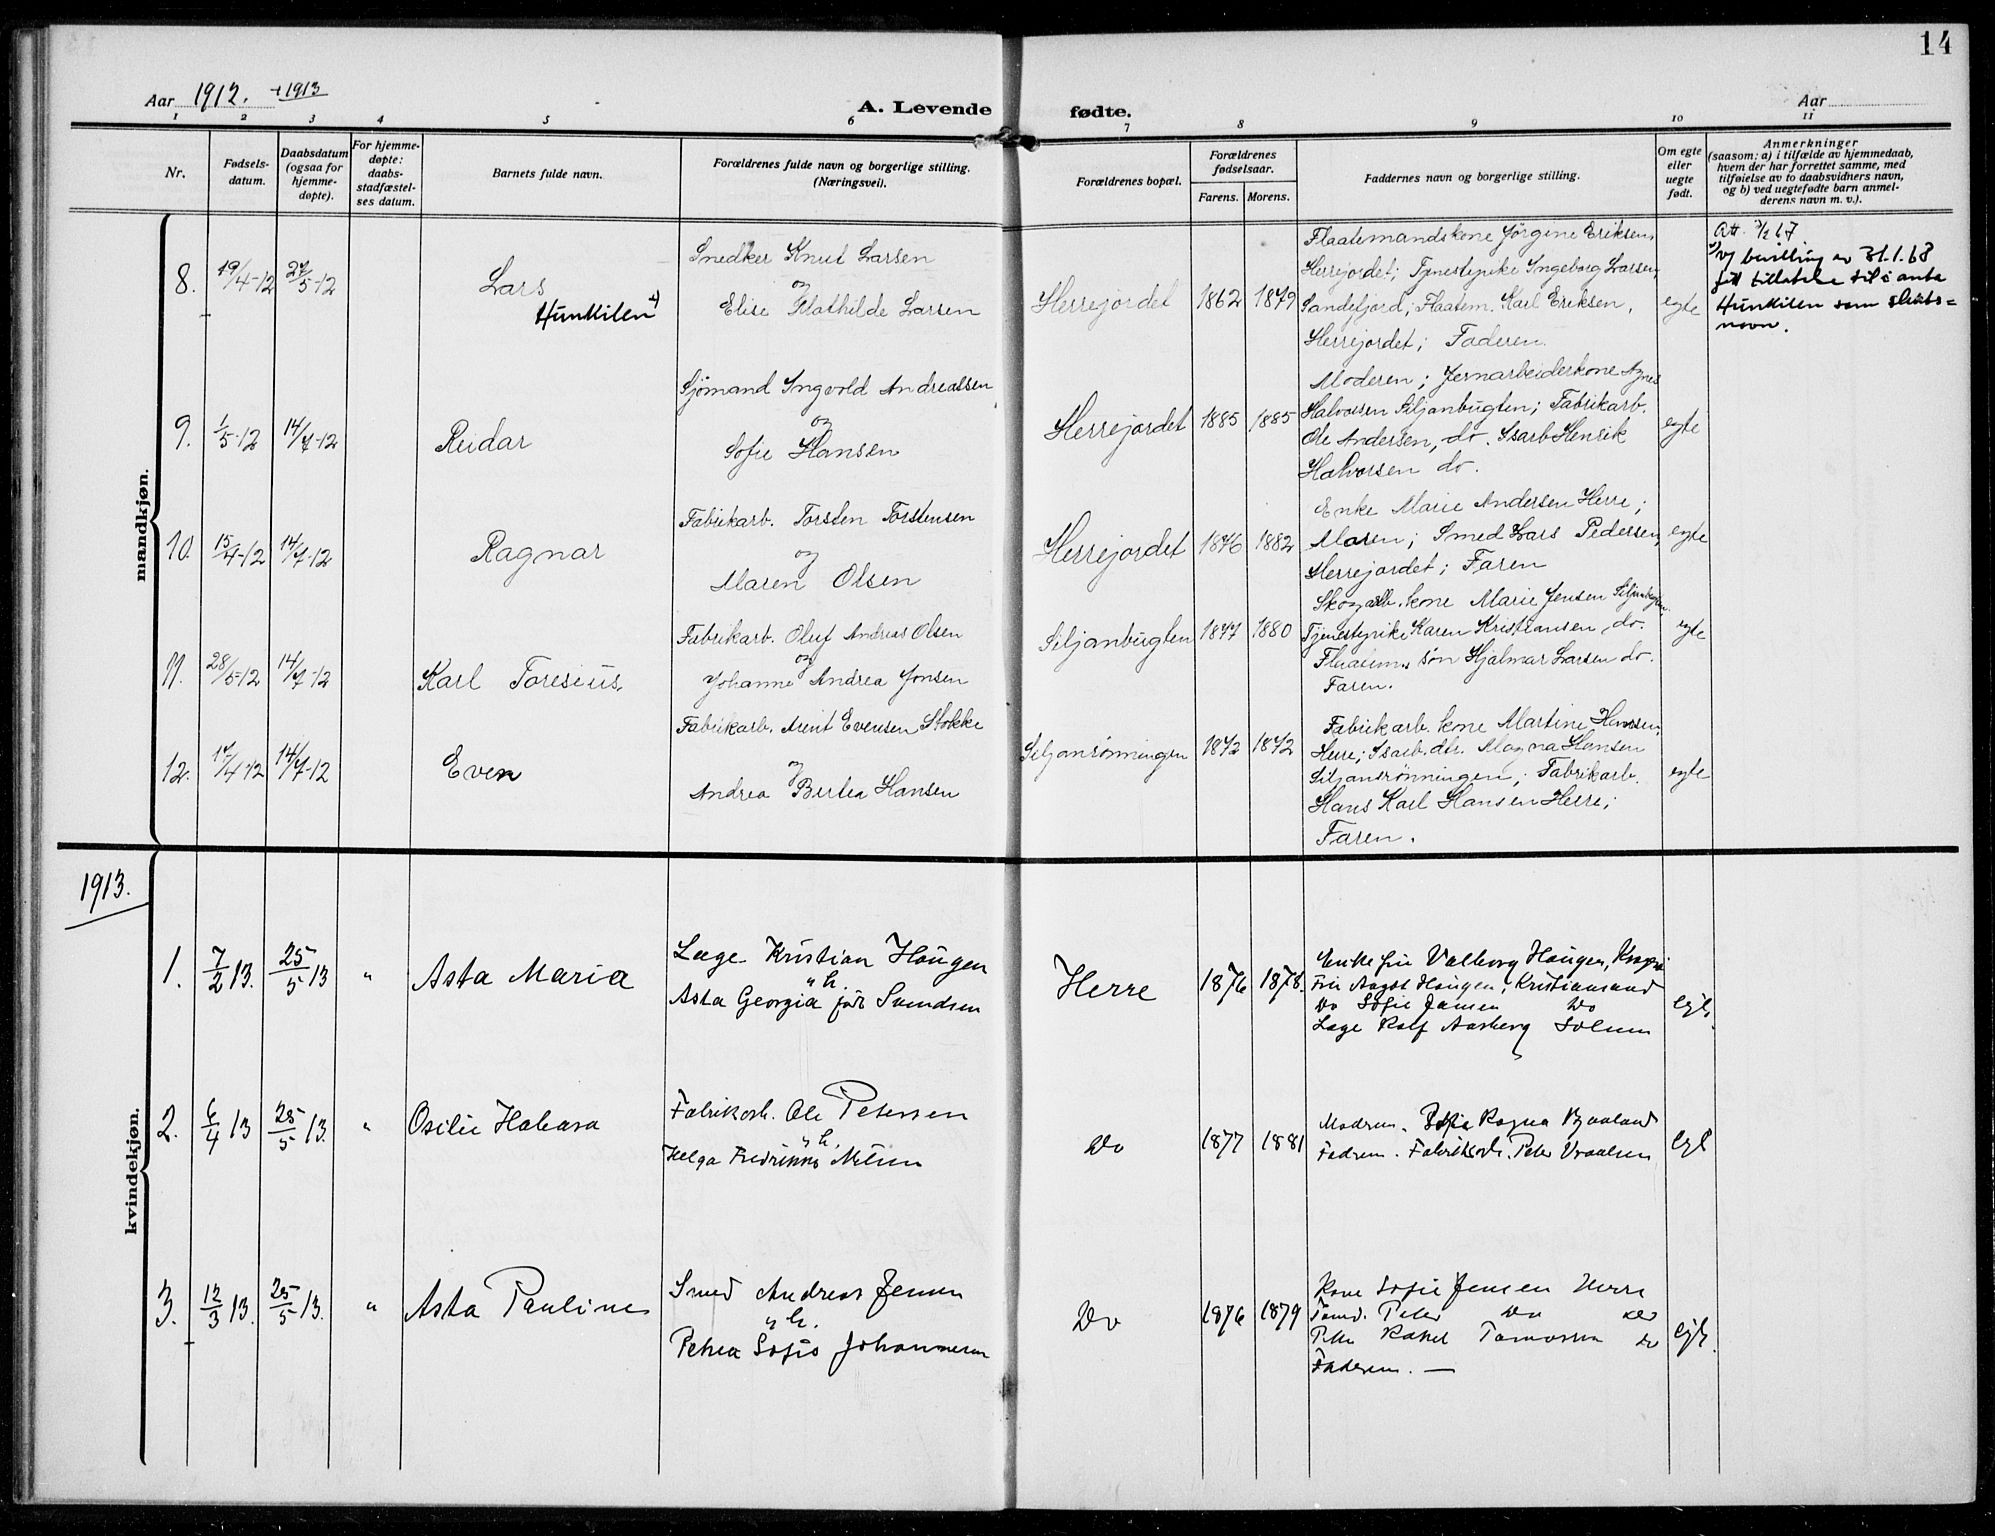 14
Aar 1912. + 1913
A. Levende fødte.
Aar
1 2 3 4 5 6 7 8 9 10 11
Nr.
Fødsels-
datum.
Daabsdatum
(ogsaa for
hjemme-
døpte).
For hjemme-
døpte:
daabs-
stadfæstel-
ses datum.
Barnets fulde navn.
Forældrenes fulde navn og borgerlige stilling.
(Næringsvei).
Forældrenes bopæl.
Forældrenes
fødselsaar.
Farens. Morens.
Faddernes navn og borgerlige stilling.
Om egte
eller
uegte
født.
Anmerkninger
(saasom: a) i tilfælde av hjemmedaab,
hvem der har forrettet samme, med
tilføielse av to daabsvidners navn,
og b) ved uegtefødte barn anmel-
derens navn m. v.).
mandkjøn.
8. 19/4-12 27/5-12
Lars
Hunkilen 1)
Snedker Knut Larsen
og
Elise Mathilde Larsen
Herrejordet 1862 1879
Flaatemandskone Jørgine Eriksen,
Herrejordet; Tjenestepike Ingeborg Larsen,
Sandefjord; Flaatem. Karl Eriksen,
Herrejordet; Faderen.
egte
Att. 3/2 67
1) Vj bevilling av 31.1.68
fått tillatelse til å anta
Hunkilen som slekts=
navn.
9. 1/5-12 14/7-12
Reidar
Sjømand Ingvold Andreassen
og
Sofie Hansen
Herrejordet 1885 1885
Moderen; Jernarbeiderkone Agnes
Halvorsen Siljanbugten; Fabrikarb.
Ole Andersen, do. Isarb Henrik
Halvorsen do.
egte
10. 15/4-12 14/7-12
Ragnar
Fabrikarb. Torsten Torstensen
og
Maren Olsen
Herrejordet 1876 1882
Enke Marie Andersen Herre;
Moren; Smed Lars Pedersen,
Herrejordet; Faren
egte
11. 28/5-12 14/7-12
Karl Toresius.
Fabrikarb. Oluf Andreas Olsen
og
Johanne Andrea Jonsen
Siljanbugten 1877 1880
Skogarb. kone Marie Jensen Siljanbugten.
Tjenestepike Karen Kristiansen, do.
Flaatem. søn Hjalmar Larsen do.
Faren.
egte
12. 17/4-12 14/7-12
Even
Fabrikarb. Arent Evensen Stokke
og
Andrea Bertea Hansen
Siljanrønningen 1872 1872
Fabrikarb. kone Martine Hansen,
Herre; Isarb. dtr. Magna Hansen
Siljanrønningen; Fabrikarb.
Hans Karl Hansen Herre;
Faren.
egte
1913.
kvindekjøn.
1. 7/2 13. 25/5 13 "
Asta Maria
Læge Kristian Haugen
o h.
Asta Georgia født Svendsen
Herre 1876 1878.
Enkefru Valborg Haugen,
Fru Aagot Haugen, Kristiansand
Do Sofie Jansen Do
Læge Rolf Aasberg Solum
egt.
2. 6/4 13 25/5 13. "
Osilie Halvara
Fabrikarb. Ole Peterssen
o h.
Helga Fredrikke Nilsen
Do 1877 1881
Modren. Sofie Ragna Bjaaland
Fadren. Fabrikarb. Peter Vraalsen
egt
3. 12/3 13. 25/5 13. "
Asta Pauline
Smed Andreas Jensen
o h.
Petrea Sofie Johannesen
Do 1876 1879
Kone Sofie Jensen Herre
Tømd. Peter Do do
Pike Rakel do
Faderen. —
egt.